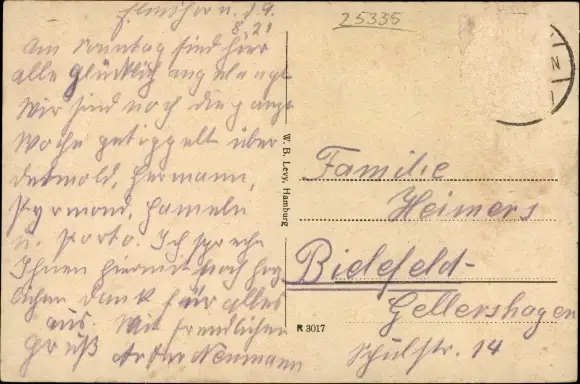 Elmshorn, 19.
8. 21
25335
Am Sonntag sind hier
alle glücklich angelangt
Wir sind noch die ganze
Woche getippelt über
Detmold, Hermann,
Pyrmond, Hameln
n. Porta. Ich spreche
Ihnen hiermit noch herz
lichen Dank für alles
aus. Mit freundlichen
Gruß Neumann
W. B. Levy, Hamburg
Familie
Heimers
Bielefeld-
Gellershagen
Schulstr. 14
R 3017